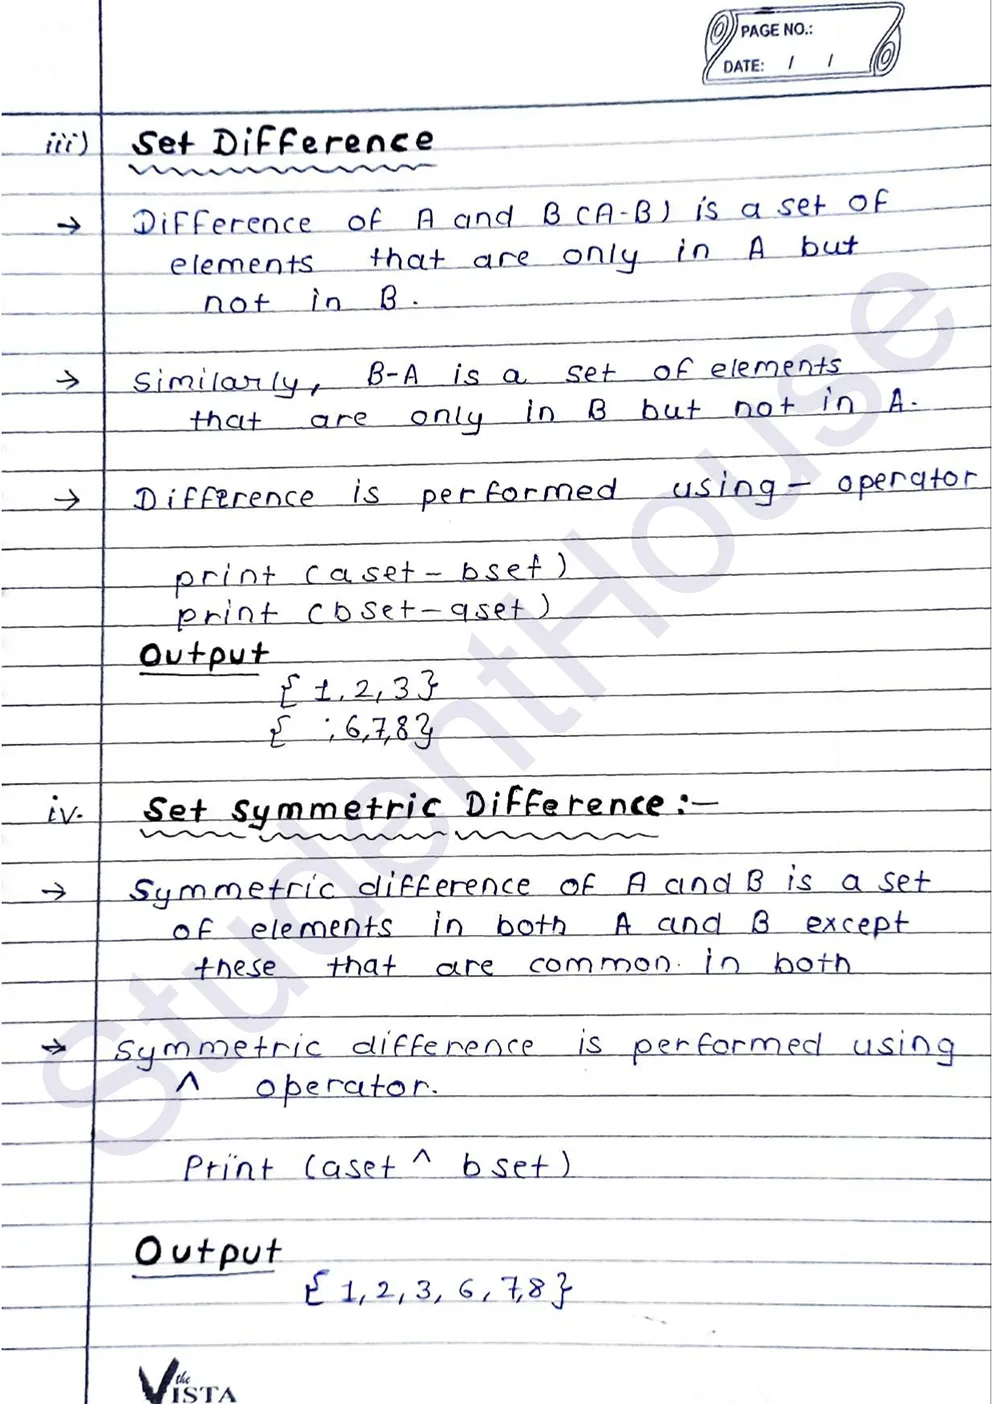 PAGE NO.:
DATE: / /
iii) Set Difference
→ Difference of A and B (A-B) is a set of
elements that are only in A but
not in B.
→ Similarly, B-A is a set of elements
that are only in B but not in A.
→ Difference is performed using - operator
print (aset - bset)
print (bset - aset)
Output
{ 1, 2, 3}
{ ; 6,7,8}
iv. Set Symmetric Difference:-
→ Symmetric difference of A and B is a set
of elements in both A and B except
these that are common. in both
→ Symmetric difference is performed using
^ operator.
Print (aset ^ bset)
Output
{ 1, 2, 3, 6, 7,8}
the
VISTA
StudentHouse